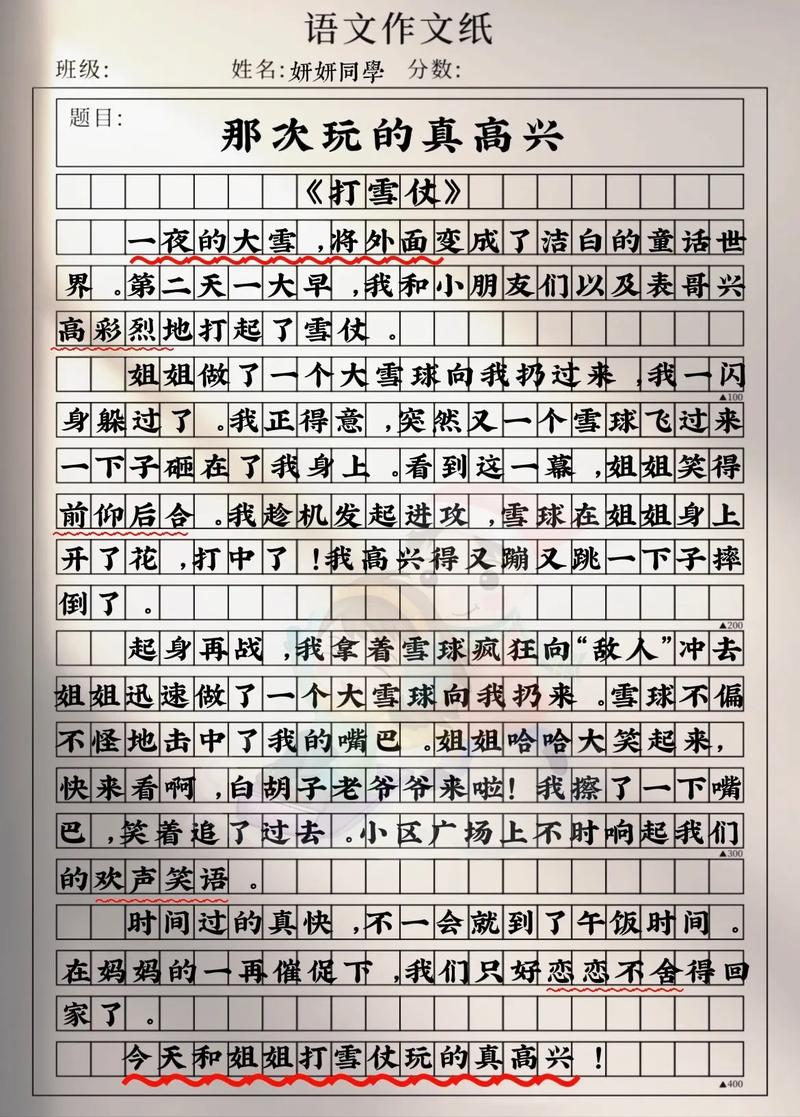 语文作文纸
班级: 姓名:妍妍同學 分数:
题目:
那次玩的真高兴
《打雪仗》
一夜的大雪,将外面变成了洁白的童话世
界。第二天一大早,我和小朋友们以及表哥兴
高彩烈地打起了雪仗。
姐姐做了一个大雪球向我扔过来,我一闪
▲100
身躲过了。我正得意,突然又一个雪球飞过来
一下子砸在了我身上。看到这一幕,姐姐笑得
前仰后合。我趁机发起进攻,雪球在姐姐身上
开了花,打中了!我高兴得又蹦又跳一下子摔
倒了。
▲200
起身再战,我拿着雪球疯狂向“敌人”冲去
姐姐迅速做了一个大雪球向我扔来。雪球不偏
不怪地击中了我的嘴巴。姐姐哈哈大笑起来,
快来看啊,白胡子老爷爷来啦!我擦了一下嘴
巴,笑着追了过去。小区广场上不时响起我们
▲300
的欢声笑语。
时间过的真快,不一会就到了午饭时间。
在妈妈的一再催促下,我们只好恋恋不舍得回
家了。
今天和姐姐打雪仗玩的真高兴!
▲400